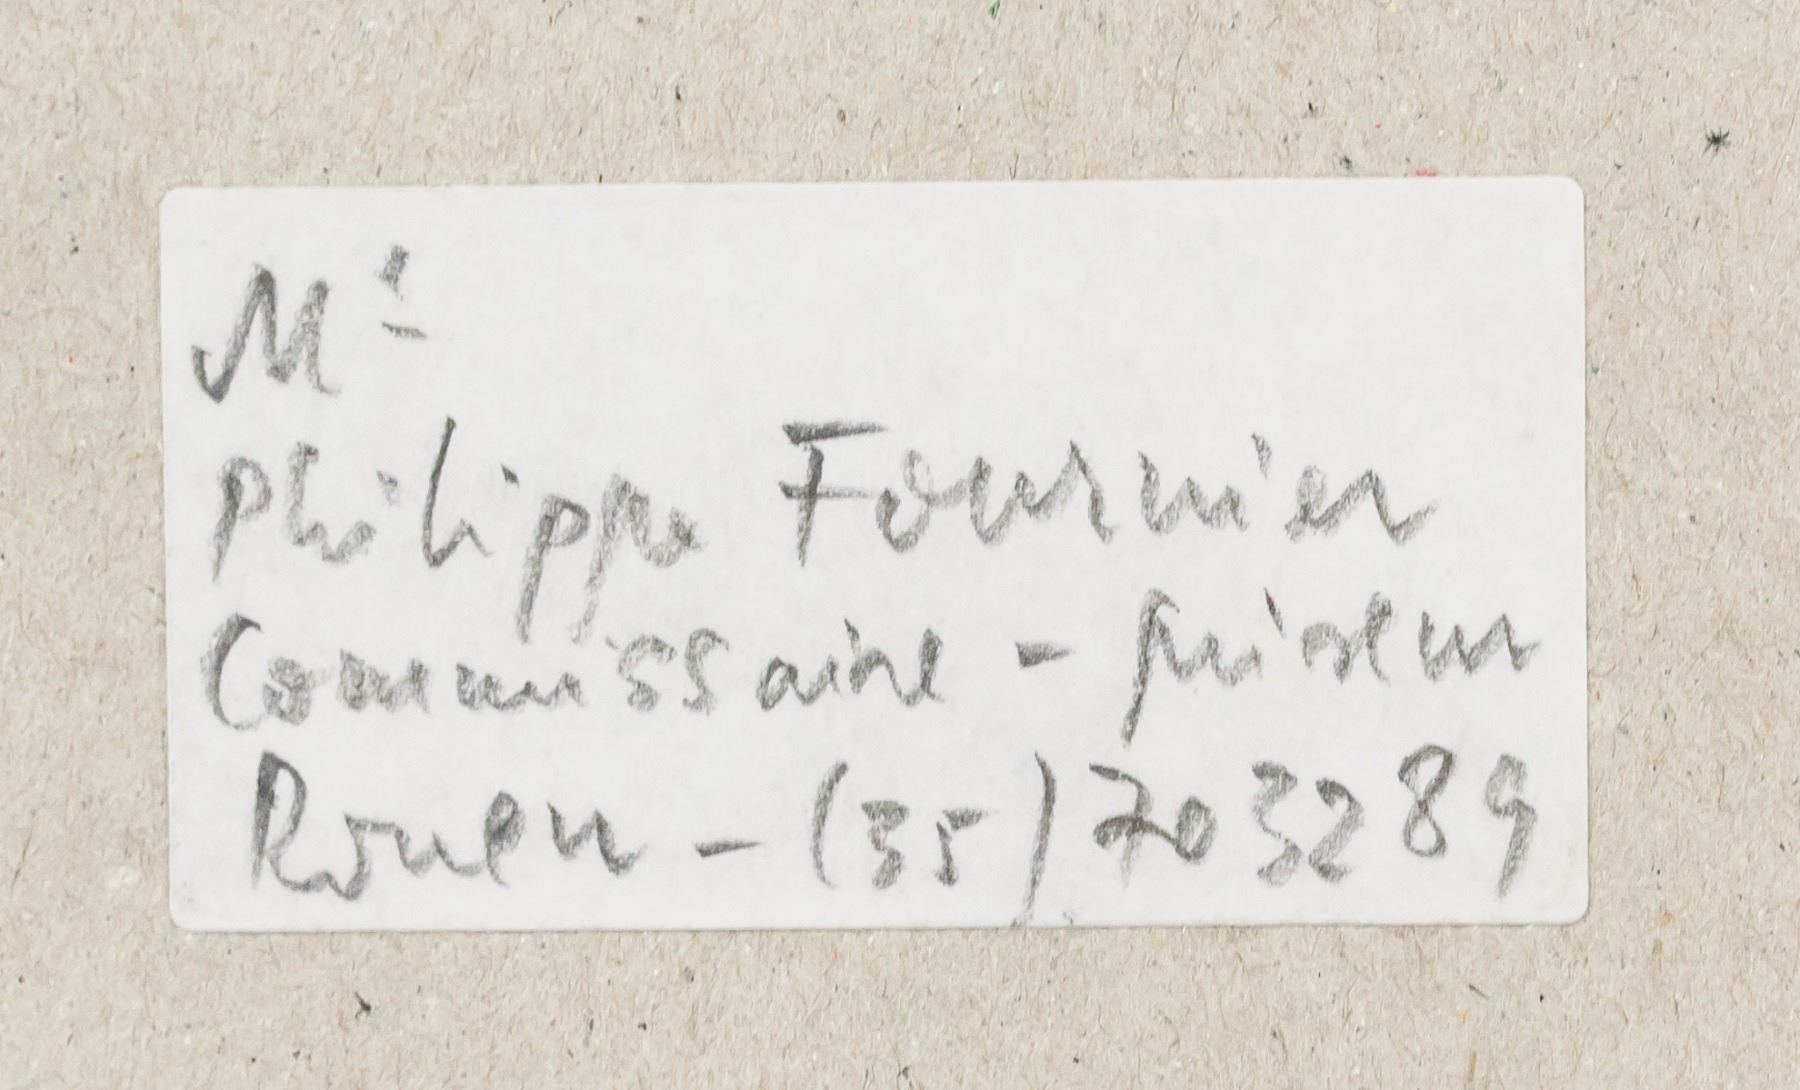 Me
Philippe Fournier
Commissaire - priseur
Rouen - (35) 703289